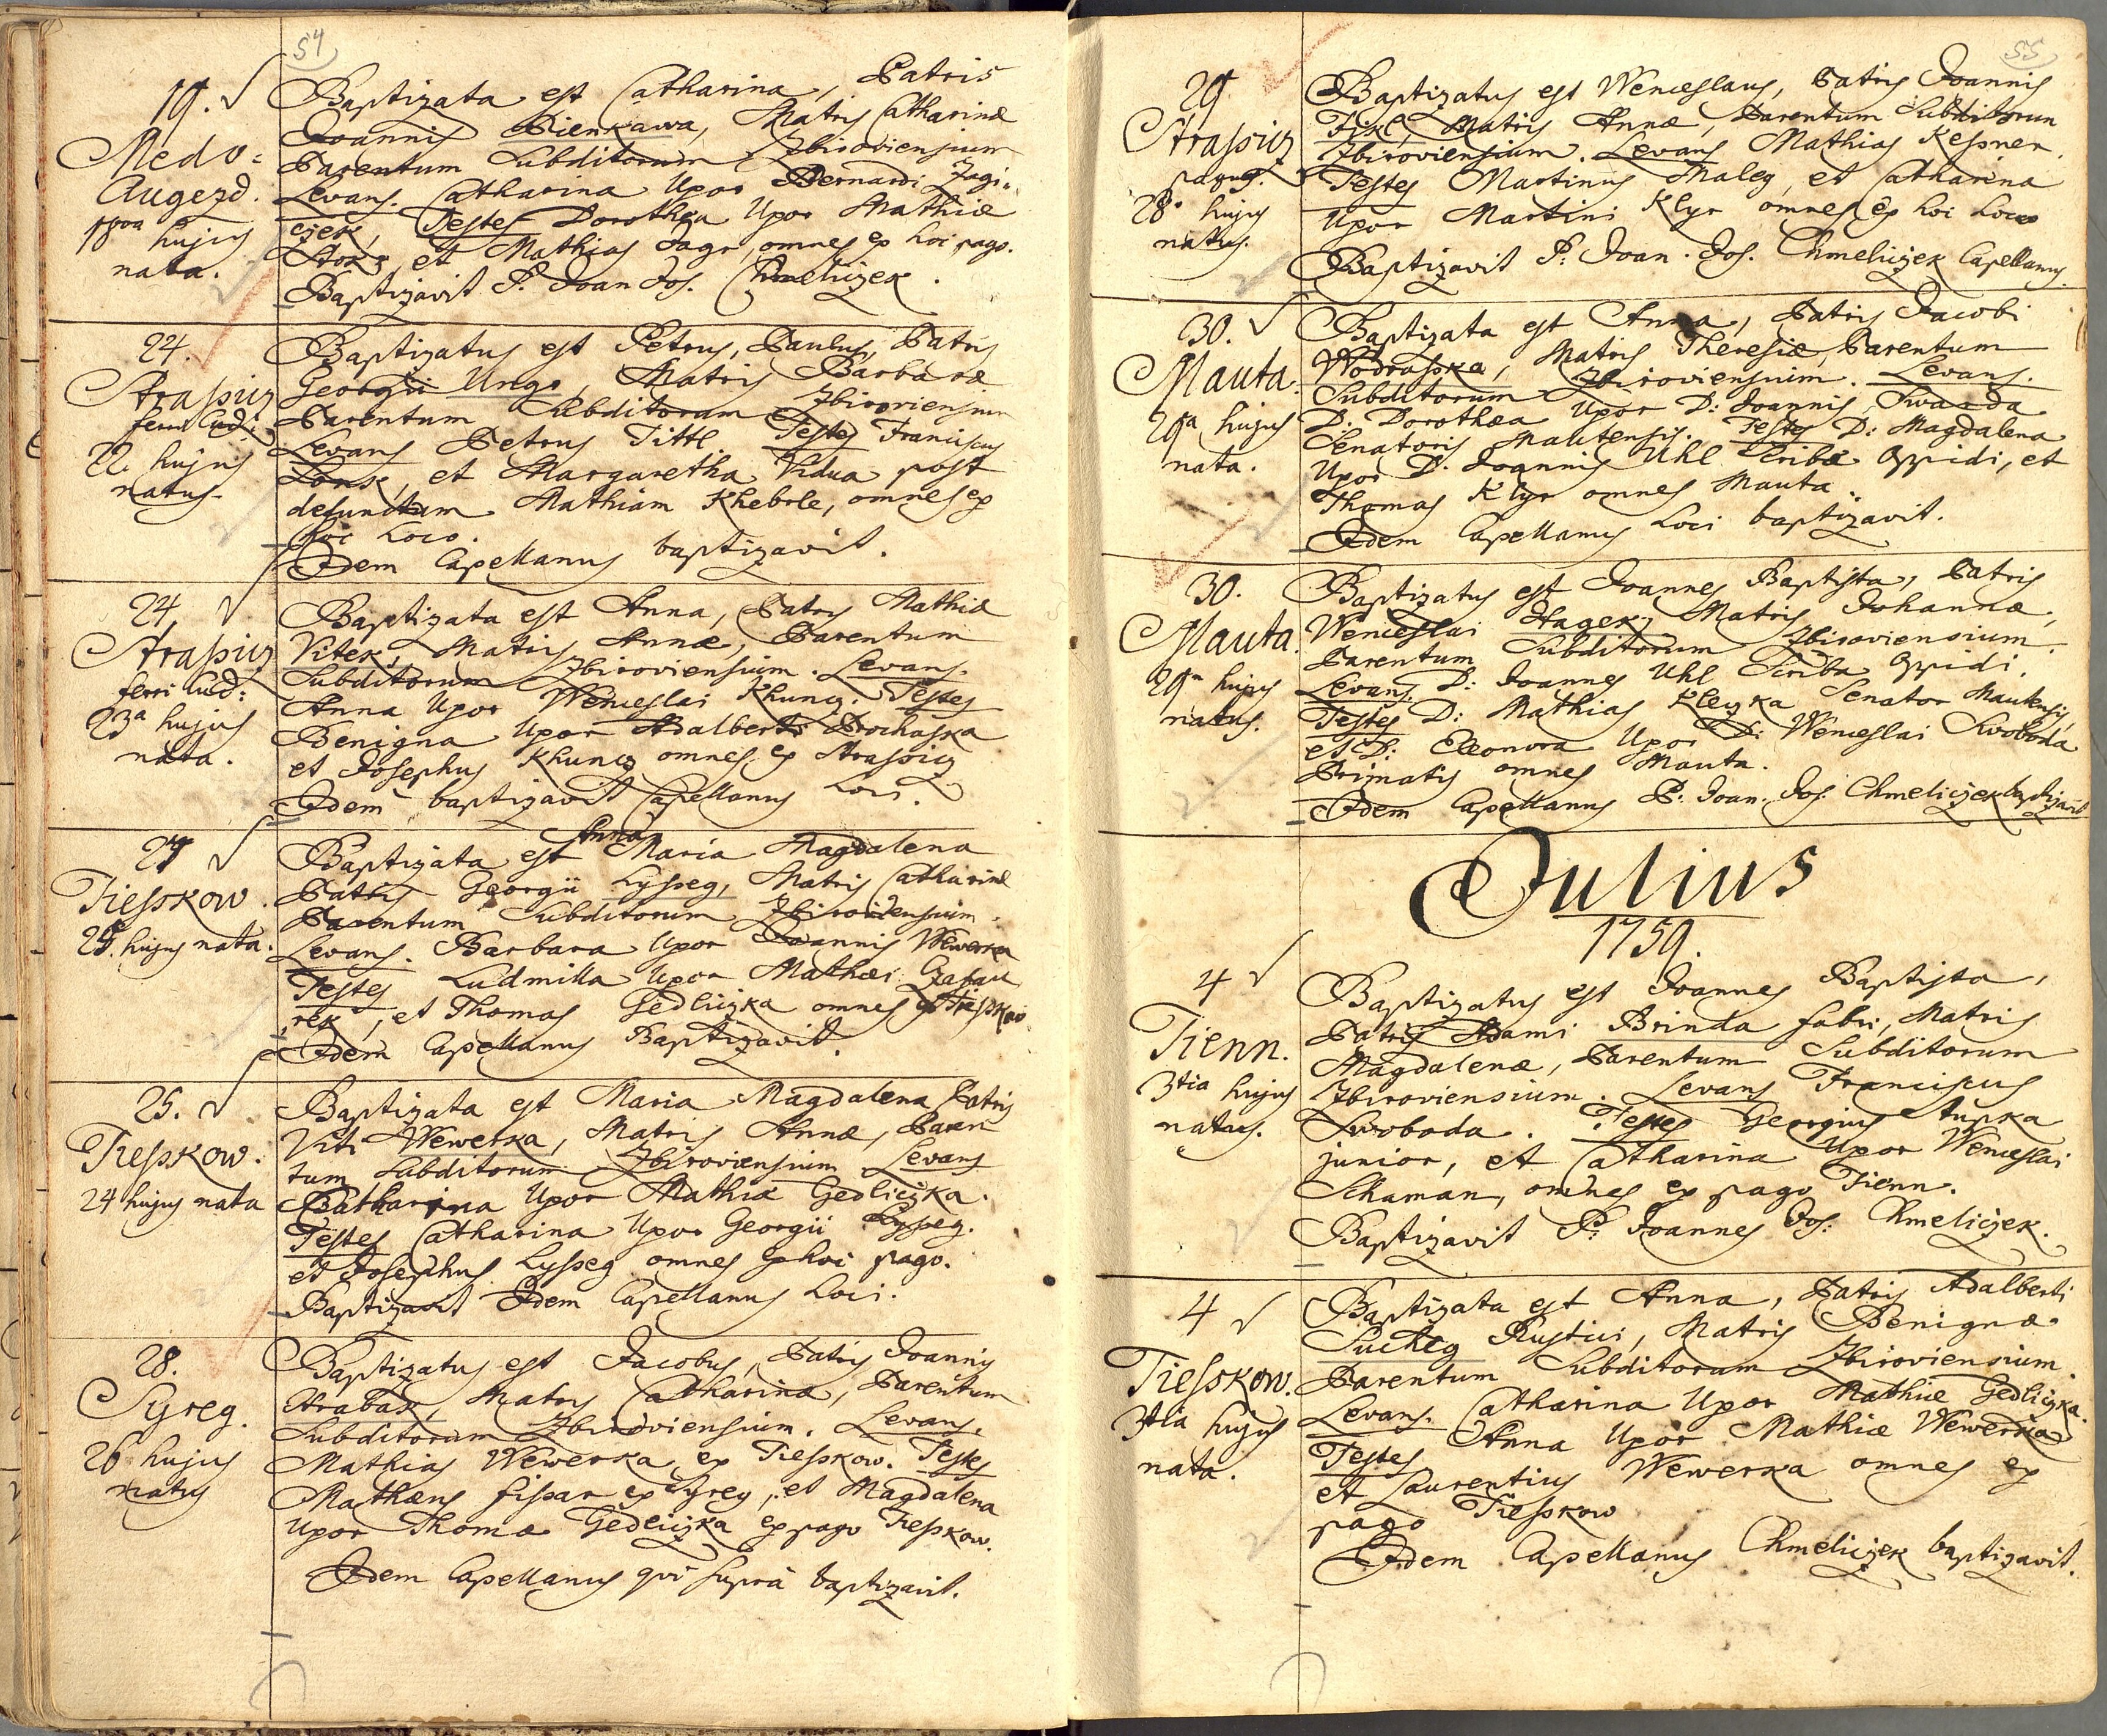 54
19.
Medo=
Augezd.
18va
hujus
nata.
Baptizata est Catharina, Patris
Joannis Pienkawa, Matris Catharinæ
Parentum Subditorum Zbiroviensium
Levans. Catharina Uxor Bernardi Zagi=
czek, Testes Dorothea Uxor Mathiæ
et Mathias omnes ex hoc pago.
Baptizavit P. Joan Jos. Chmeliczek.
24.
Strassicz
ferri Cud:
22. hujus
natus.
Baptizatus est Petrus, Paulus, Patris
Georgii Ungr, Matris Barbaræ
Parentum Subditorum Zbiroviensium
Levans Petrus Tittl Testes Franciscus
et Margaretha Vidua post
defunctum Mathiam Kheberle, omnes ex
hoc Loco.
Idem Capellanus baptizavit.
24
Strassicz
ferri Cud:
23a hujus
nata.
Baptizata est Anna, Patris Mathiæ
Vitek, Matris Annæ, Parentum
Subditorum Zbiroviensium. Levans.
Anna Uxor Wenceslai Khuncz. Testes
Benigna Uxor Adalberti Prochaska
et Josephus Khuncz omnes ex Strassicz
Idem baptizavit Capellanus Loci.
Tiesskow.
hujus nata.
Anna
Baptizata est Maria Magdalena
Patris Georgii Lysseg, Matris Catharinæ
Parentum Subditorum Zbiroviensium.
Levans. Barbara Uxor Joannis Wewerka
Testes Ludmilla Uxor Mathæi
rek, et Thomas Gedliczka omnes ex Tiesskow
Idem Capellanus Baptizavit.
25.
Tiesskow.
24 hujus nata
Baptizata est Maria Magdalena Patris
Viti Wewerka, Matris Annæ, Paren
tum Subditorum Zbiroviensium Levans
Catharina Uxor Mathiæ Gedliczka.
Testes Catharina Uxor Georgii Lysseg.
et Josephus Lysseg omnes ex hoc pago.
Baptizavit Idem Capellanus Loci.
28.
Syreg.
26 hujus
natus
Baptizatus est Jacobus, Patris Joannis
Hrabak, Matris Catharinæ, Parentum
Subditorum Zbiroviensium. Levans.
Mathias Wewerka ex Tiesskow. Testes
Mathæus fissar ex Syreg, et Magdalena
Uxor Thomæ Gedliczka ex pago Tiesskow.
Idem Capellanus qvi supra baptizavit.
55
29
Strassicz
pagus.
28. hujus
natus.
Baptizatus est Wenceslaus, Patris Joannis
Fixl, Matris Annæ, Parentum Subditorum
Zbiroviensium. Levans Mathias Kessner.
Testes Martinus Maleg, et Catharina
Uxor Martini Klyr omnes ex hoc Loco
Baptizavit P: Joan. Jos. Chmeliczek Capellanus.
30.
Mauta.
29a hujus
nata.
Baptizata est Anna, Patris Jacobi
Wodraska, Matris Theresiæ, Parentum
Subditorum Zbiroviensium. Levans.
D: Dorothea Uxor D: Joannis Swarda
Senatoris Mautensis. Testes D: Magdalena
Uxor D. Joannis Uhl Scribæ Oppidi, et
Thomas Klyr omnes Mauta.
Idem Capellanus Loci baptizavit.
30.
Mauta.
29a hujus
natus.
Baptizatus est Joannes Baptista, Patris
Wenceslai Hagek, Matris Johannæ,
Parentum Subditorum Zbiroviensium.
Levans. D: Joannes Uhl Scriba Oppidi.
Testes D: Mathias Kleczka Senator Mautensis,
et D: Eleonora Uxor D: Wenceslai Swoboda
Primatis omnes Mauta.
Idem Capellanus P: Joan. Jos: Chmeliczek baptizavit
Julius
1759.
4
Tienn.
3tia hujus
natus.
Baptizatus est Joannes Baptista,
Patris Adami Brinda fabri, Matris
Magdalenæ, Parentum Subditorum
Zbiroviensium. Levans Franciscus
Swoboda. Testes Georgius Stupka
junior, et Catharina Uxor Wenceslai
Schaman, omnes ex pago Tienn.
Baptizavit P: Joannes Jos: Chmeliczek.
4
Tiesskow.
3tia hujus
nata.
Baptizata est Anna, Patris Adalberti
Sucheg Rustici, Matris Benignæ
Parentum Subditorum Zbiroviensium
Levans. Catharina Uxor Mathiæ Gedliczka.
Testes Anna Uxor Mathiæ Wewerka
et Laurentius Wewerka omnes ex
pago Tiesskow
Idem Capellanus Chmeliczek baptizavit.